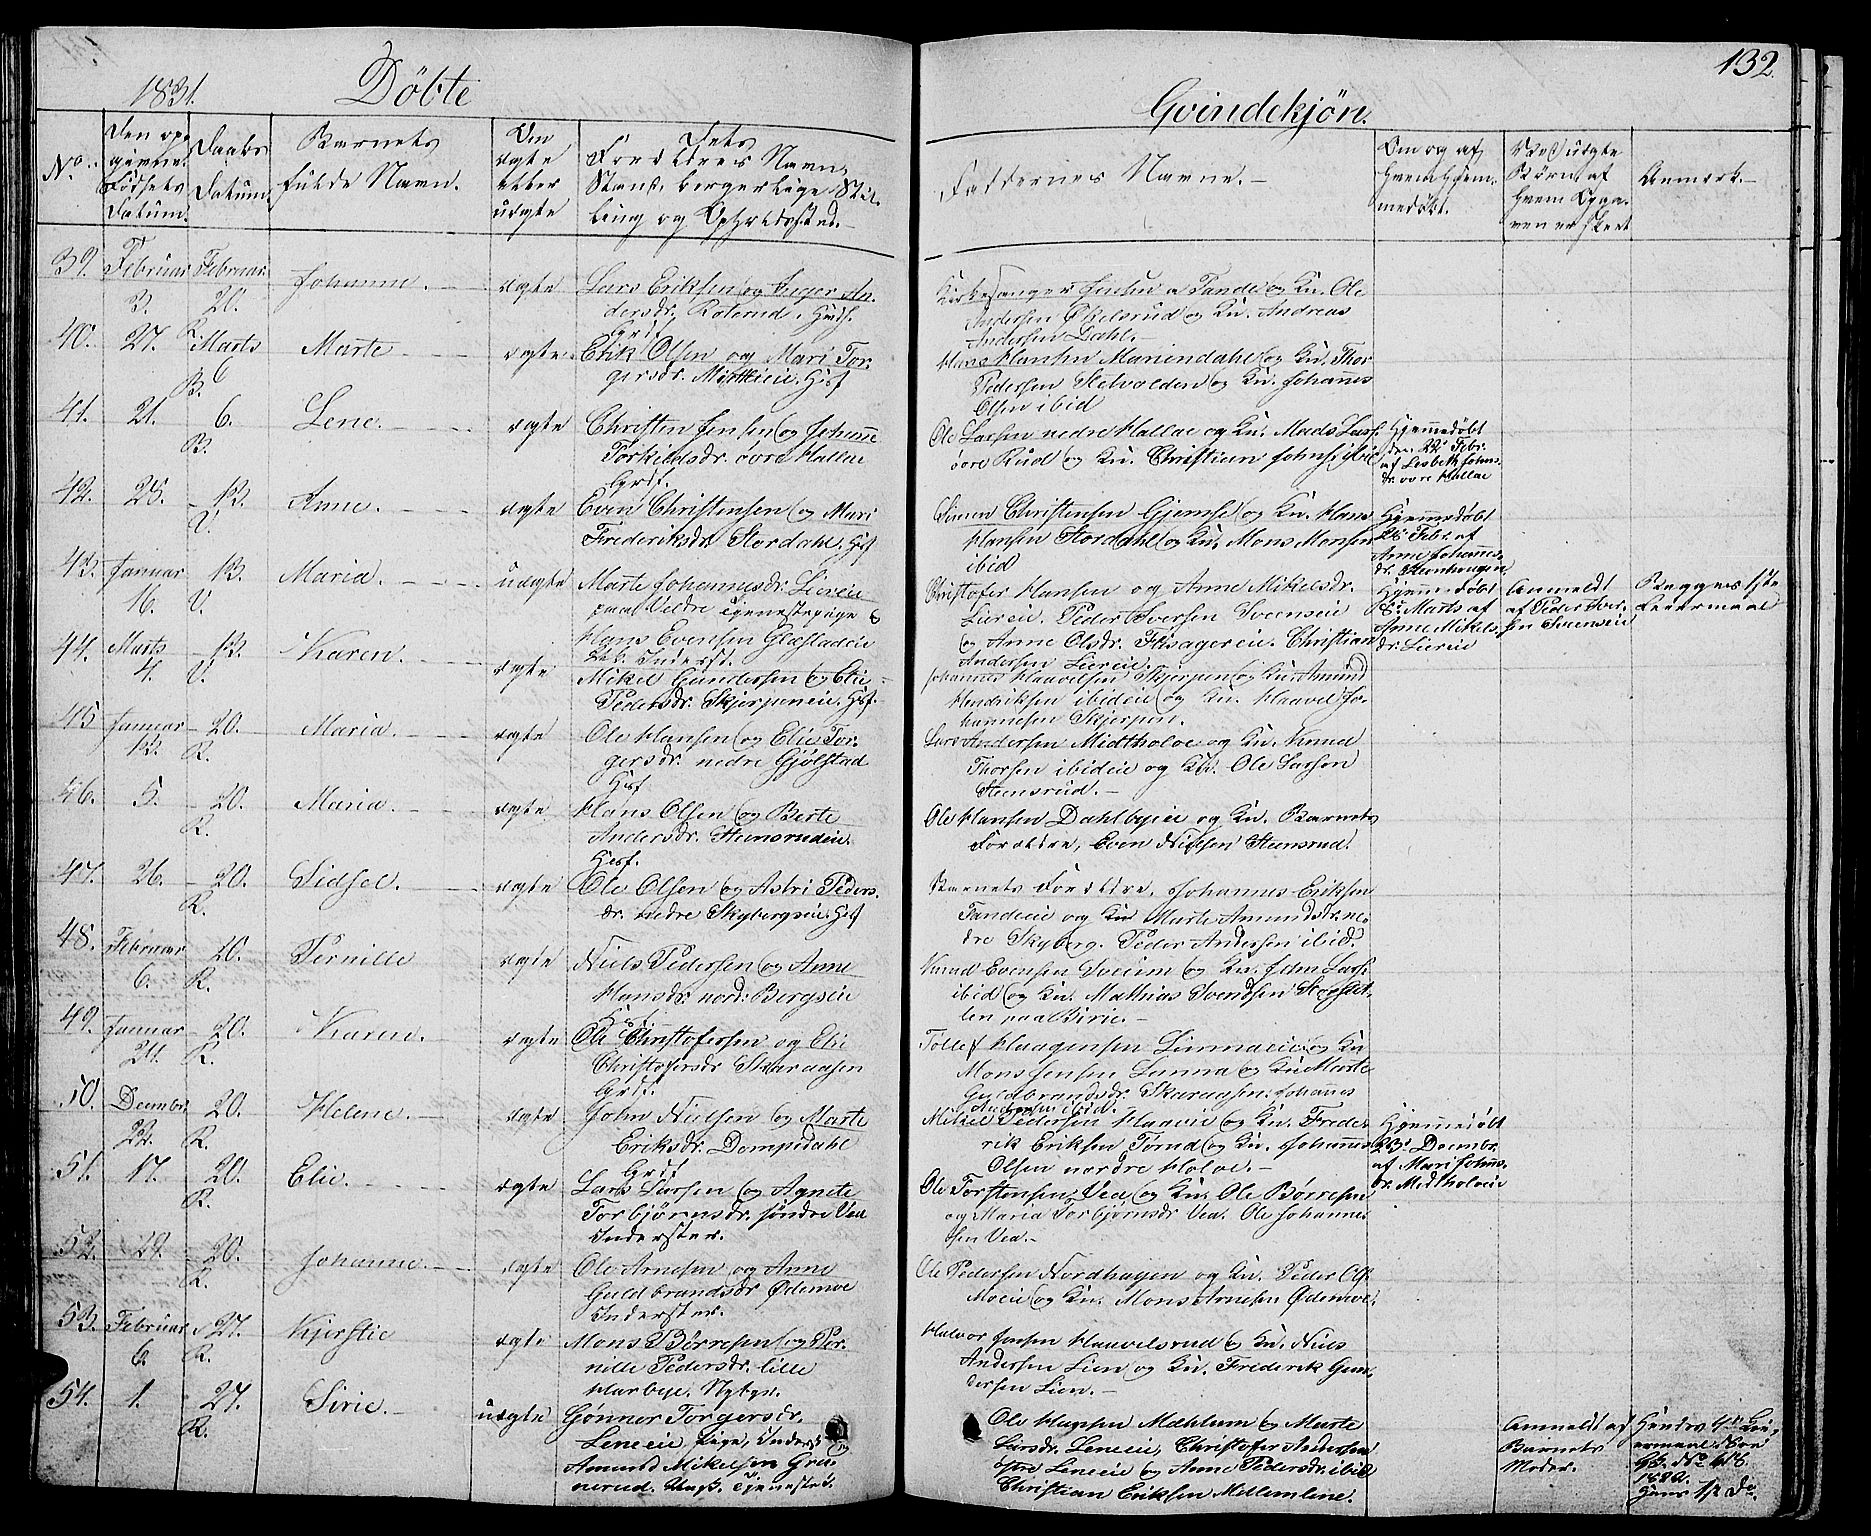 132.
1831. Döbte
Qvindekjön.
No. Den op-
givne
Födsels
Datum.
Daabs
Datum.
Barnets
fulde Navn.
Om
ægte
eller
uægte
Dets
Forældres Navn,
Stand, borgerlige Stil-
ling og Opholdssted.
Faddernes Navne.
Om og af
hvem hjem-
medöbt.
Ved uægte
Börn, af
hvem Opga-
ven er skeet
Anmærk.
39. Februar Februar Johanne. ægte Lars Eriksen og Inger An-
3. 20. dersdr. Roterud, Huusf.
R.
Kirkesanger Jensen a Fande og Kn. Ole
Andersen Økelsrud og Kn. Andreas
Andersen Dahl.
40. 27. Marts Marte ægte Erik Olsen og Mari Tor-
6 gersdr. Hisf
B.
Hans Hansen Mariendahl og Kn. Thor
Pedersen og Kn. Johannes
Olsen ibid
41. 21. 6. Lene. ægte Christen Jensen og Johanne
B. Torkildsdr. övre Hallae
Grdf.
Ole Larsen nedre Hallae og Kn. Mads Lars.
övre Rud og Kn. Christian Johns. ibid
Hjemmedöbt
den 22 Febr.
af Lisbeth Johns-
dr. övre Hallae
42. 25. 13. Anne. ægte Even Christensen og Mari
V. Frederiksdr. Stordahl. Hisf
Simen Christensen Gjemse og Kn. Hans
Hansen Stordahl og Kn. Mons Monsen
ibid
Hjemmedöbt
26 Febr. af
Anne Johannes-
dr. Steenhaugen
43. Januar 13. Maria. uægte Marte Johannesdr. Liereie
16. V. paa Vedre Tjenestepige &
Hans Evensen Glæstadeie
Inderst.
Christofer Hansen og Anne Mikelsdr.
Liereie. Peder Iversen Svenseie
og Anne Olsdr. Flisagereie. Christian
Andersen Liereie.
Hjemmedöbt
8 Marts af
Anne Mikels-
dr. Liereie
Anmeldt
af Peder Iver-
sen Svenseie
Begges 1ste
Leiermaal
44. Marts 13. Karen. ægte Mikel Gundersen og Elie
4. V. Pedersdr. Skjerpeneie. Hsf.
Johannes Haavelsen Skjerpen og Kn. Amund
Hendriksen ibideie og Kn. Haavel Jo-
hannesen Skjerpen.
45 Januar 20. Maria. ægte Ole Hansen og Elie Tor-
12. R. gersdr. nedre Gjölstad
Hsf
Lars Andersen Midtholoe og Kn. Knud
Thorsen ibideie og Kn. Ole Larsen
Steensrud.
46. 5. 20. Maria. ægte Hans Olsen og Berte
R. Andersdr. Steensrudeie.
Husf.
Ole Hansen Dahlbyeie og Kn. Barnets
Forældre, Even Nielsen Steensrud.
47. 26. 20. Sidsel. ægte Ole Olsen og Astri Peders-
R. dr. nedre Skybergseie. Hsf
Barnets Forældre. Johannes Eriksen
Fandeeie og Kn Marte Amundsdr. ne-
dre Skyberg. Peder Andersen ibid.
48. Februar 20. Pernille ægte Niels Pedersen og Anne
6. R. Hansdr. nord. Bergseie
Knud Evensen Sveium og Kn. Jehn Lars.
ibid og Kn. Mathias Svendsen
paa Birie.
49. Januar 20. Karen. ægte Ole Christofersen og Elie
24. R. Christofersdr Skaraasen
Grdf.
Tollef Haagensen Linnaeie og Kn
Mons Jensen Linna og Kn Marte
Guldbrandsdr. Skaraasen. Johannes
Andersen ibid.
50. Decembr 20. Helene. ægte John Nielsen og Marte
22. R. Eriksdr. Dompidahl
Grdf
Mikel Pedersen Haavie og Kn. Frede-
rik Eriksen Torud og Kn. Johannes
Olsen nordre Holoe.
Hjemmedöbt
23. Decembr.
af Mari Johns-
dr. Midtholoeie
51. 17. 20. Elie. ægte Lars Larsen og Agnete
R. Torbjörnsdr. söndre Vea
Inderster.
Ole Torstensen Vea og Kn. Ole Börresen
og Maria Torbjörnsdr Vea. Ole Johannes-
sen Vea.
52. 29. 20. Johanne. ægte Ole Arnesen og Anne
R. Guldbrandsdr Ødemoe
Inderster.
Ole Pedersen Nordhagen og Kn. Peder Ols.
Moeie og Kn. Mons Arnesen Ødemoe.
53. Februar 27. Kjerstie ægte Mons Börresen og Per-
6. R. nille Pedersdr. lille
Harbye. Nybgr.
Halvor Jensen Haavelsrud & Kn. Niels
Andersen Lien og Kn. Frederik Gun-
dersen Lien.
54. 1. 27. Sirie. uægte Gönnor Torgersdr.
R. Leneeie Pige, Inderst &
Amund Mikelsen Grö-
nerud. Ungk. Tjenestek.
Ole Hansen Mæhlum & Marte
Larsdr. Leneeie, Christofer Andersen
östre Leneeie og Anne Pedersdr. ibid
Christian Eriksen Mellemlene.
Anmeldt af
Barnets
Moder.
Hendes 4de Lei-
ermaal
No 618.
1822.
Hans 1ste Do.